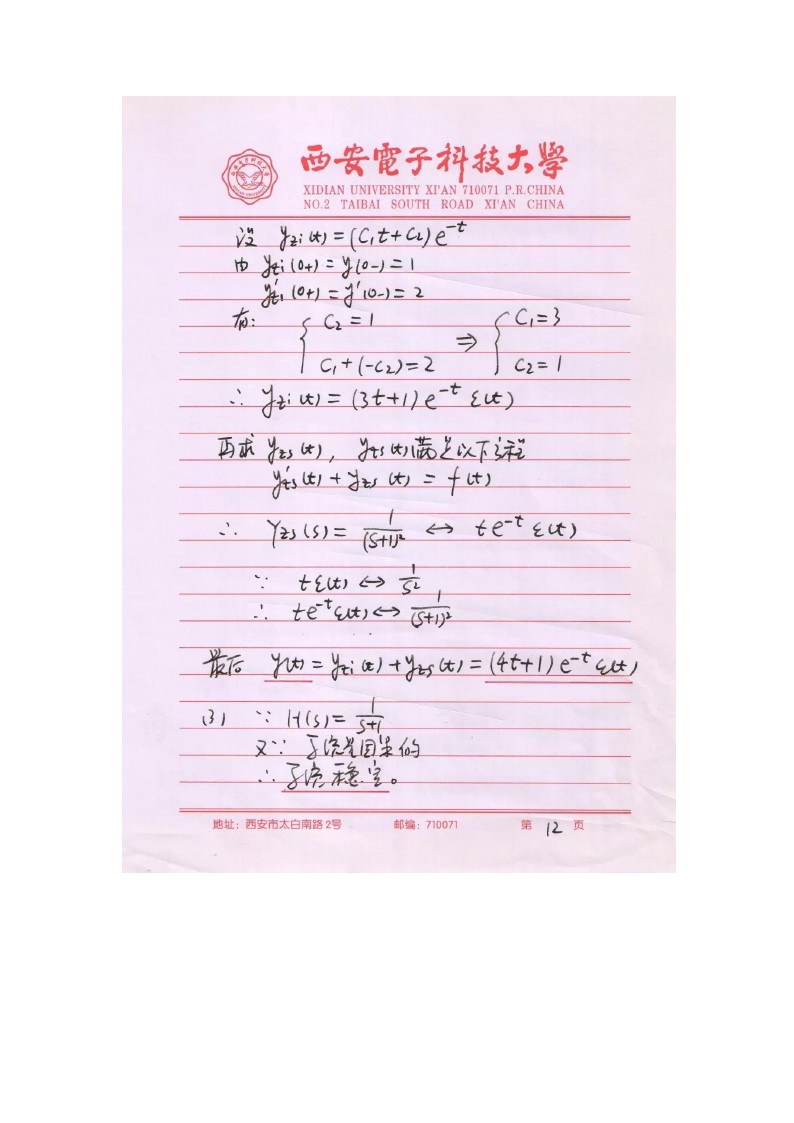 西安電子科技大學
XIDIAN UNIVERSITY XI'AN 710071 P.R.CHINA
NO.2 TAIBAI SOUTH ROAD XI'AN CHINA
设 yzi(t) = (C₁t + C₂) e^{-t}
由 yzi(0+) = y(0-) = 1
y'zi(0+) = y'(0-) = 2
有: { C₂ = 1, C₁ + (-C₂) = 2 ⇒ { C₁ = 3, C₂ = 1
∴ yzi(t) = (3t+1) e^{-t} ε(t)
再求 yzs(t), yzs(t)满足以下方程
y'zs(t) + yzs(t) = f(t)
∴ Yzs(s) = 1/(s+1)² ↔ te^{-t} ε(t)
∵ tε(t) ↔ 1/s²
∴ te^{-t}ε(t) ↔ 1/(s+1)²
最后 y(t) = yzi(t) + yzs(t) = (4t+1) e^{-t} ε(t)
(3) ∵ H(s) = 1/(s+1)
又∵ 系统是因果的
∴ 系统稳定。
地址：西安市太白南路2号 邮编：710071 第 12 页